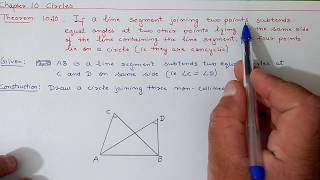 Chapter 10 Circles
Theorem 10.10 : If a line segment joining two points subtends
equal angles at two other points lying the same side
of the line containing the line segment, four points
lie on a circle (ie they are concyclic)
Given : AB is a line segment subtends two equal
C and D on same side (ie ∠C = ∠D)
Construction: Draw a circle joining three non-colline
C
D
A
B